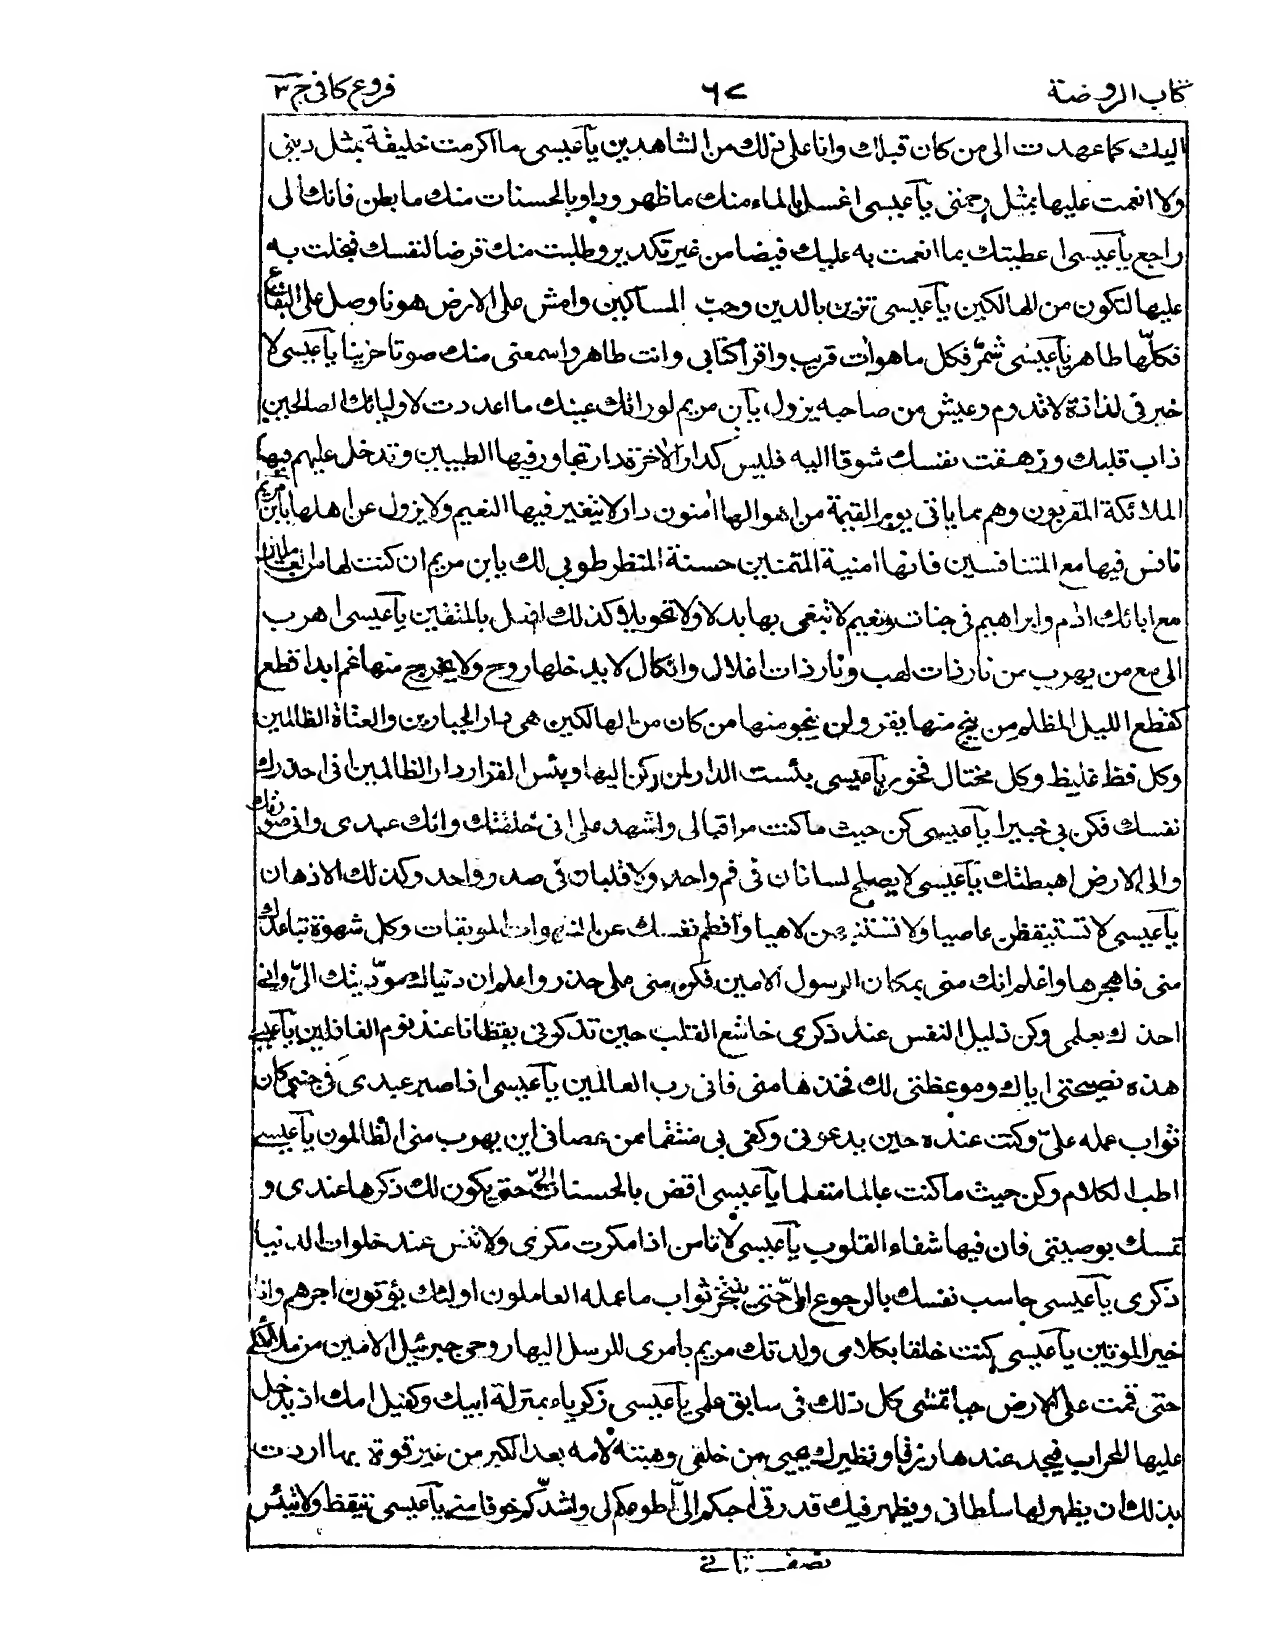 كتاب الروضة ٦٧ فروع كافي ج ٣
اليك كما عهدت الى من كان قبلك وانا على ذلك من الشاهدين يا عيسى ما اكرمت خليقة بمثل ديني
ولا انعمت عليها بمثل رحمتي يا عيسى اغسل بالماء منك ما ظهر وداو بالحسنات منك ما بطن فانك الى
راجع يا عيسى اعطيتك بما انعمت به عليك فيضا من غير تكدير وطلبت منك قرضا لنفسك فبخلت به
عليها لتكون من الهالكين يا عيسى تزين بالدين وحبّ المساكين وامش على الارض هونا وصل على البقاع
فكلّها طاهر يا عيسى شمّر فكل ما هو ات قريب واقرا كتابي وانت طاهر واسمعني منك صوتا حزينا يا عيسى لا
خير في لذاذة لا تدوم وعيش من صاحبه يزول يا بن مريم لو رات عينك ما اعددت لاوليائك الصالحين
ذاب قلبك وزهقت نفسك شوقا اليه فليس كدار الاخرة دار تجاور فيها الطيبين وتدخل عليهم فيها
الملائكة المقربون وهم مما ياتي يوم القيمة من اهوالها امنون دار لا يتغير فيها النعيم ولا يزول عن اهلها يا بن مريم
نافس فيها مع المتنافسين فانها امنية المتمنين حسنة المنظر طوبى لك يا بن مريم ان كنت لها من العاملين
مع ابائك ادم وابراهيم في جنات ونعيم لا تبغي بها بدلا ولا تحويلا كذلك افعل بالمتقين يا عيسى اهرب
الى مع من يهرب من نار ذات لهب ونار ذات اغلال وانكال لا يدخلها روح ولا يخرج منها غم ابدا قطع
كقطع الليل المظلم من ينج منها يفز ولن ينجو منها من كان من الهالكين هي دار الجبارين والعتاة الظالمين
وكل فظ غليظ وكل مختال فخور يا عيسى بئست الدار لمن ركن اليها وبئس القرار دار الظالمين انى احذرك
نفسك فكن بي خبيرا يا عيسى كن حيث ما كنت مراقبا لى واشهد على انى خلقتك وانك عبدى وانى صورتك
والى الارض اهبطتك يا عيسى لا يصلح لسانان في فم واحد ولا قلبان في صدر واحد وكذلك الاذهان
يا عيسى لا تستيقظن عاصيا ولا تستنبهن لاهيا وافطم نفسك عن الشهوات الموبقات وكل شهوة تباعدك
منى فاهجرها واعلم انك منى بمكان الرسول الامين فكن منى على حذر واعلم ان دنياك مودّيتك الىّ وانى
اخذك بعلمي وكن ذليل النفس عند ذكرى خاشع القلب حين تذكرنى يقظانا عند نوم الغافلين يا عيسى
هذه نصيحتى اياك وموعظتى لك فخذها منى فانى رب العالمين يا عيسى اذا صبر عبدى في جنبي كان
ثواب عمله علىّ وكنت عنده حين يدعونى وكفى بى منتقما ممن عصانى اين يهرب منى الظالمون يا عيسى
اطب الكلام وكن حيث ما كنت عالما متعلما يا عيسى افض بالحسنات الىّ حتى يكون لك ذكرها عندى و
تمسك بوصيتى فان فيها شفاء القلوب يا عيسى لا تامن اذا مكرت مكرى ولا تنس عند خلوات الدنيا
ذكرى يا عيسى حاسب نفسك بالرجوع الىّ حتى يتنجّز ثواب ما عمله العاملون اولئك يؤتون اجرهم وانا
خير المؤتين يا عيسى كنت خلقا بكلامى ولدتك مريم بامرى المرسل اليها روحى جبرئيل الامين من ملائكتي
حتى قمت على الارض حيا تمشى كل ذلك في سابق علمي يا عيسى زكرياء بمنزلة ابيك وكفيل امك اذ يدخل
عليها المحراب فيجد عندها رزقا ونظيرك يحيى من خلقى وهبته لامه بعد الكبر من غير قوة بها اردت
بذلك ان يظهر لها سلطانى ويظهر فيك قدرتى احبكم الىّ اطوعكم لى واشدّكم خوفا منى يا عيسى تيقظ ولا تيئس
نصف ثانى